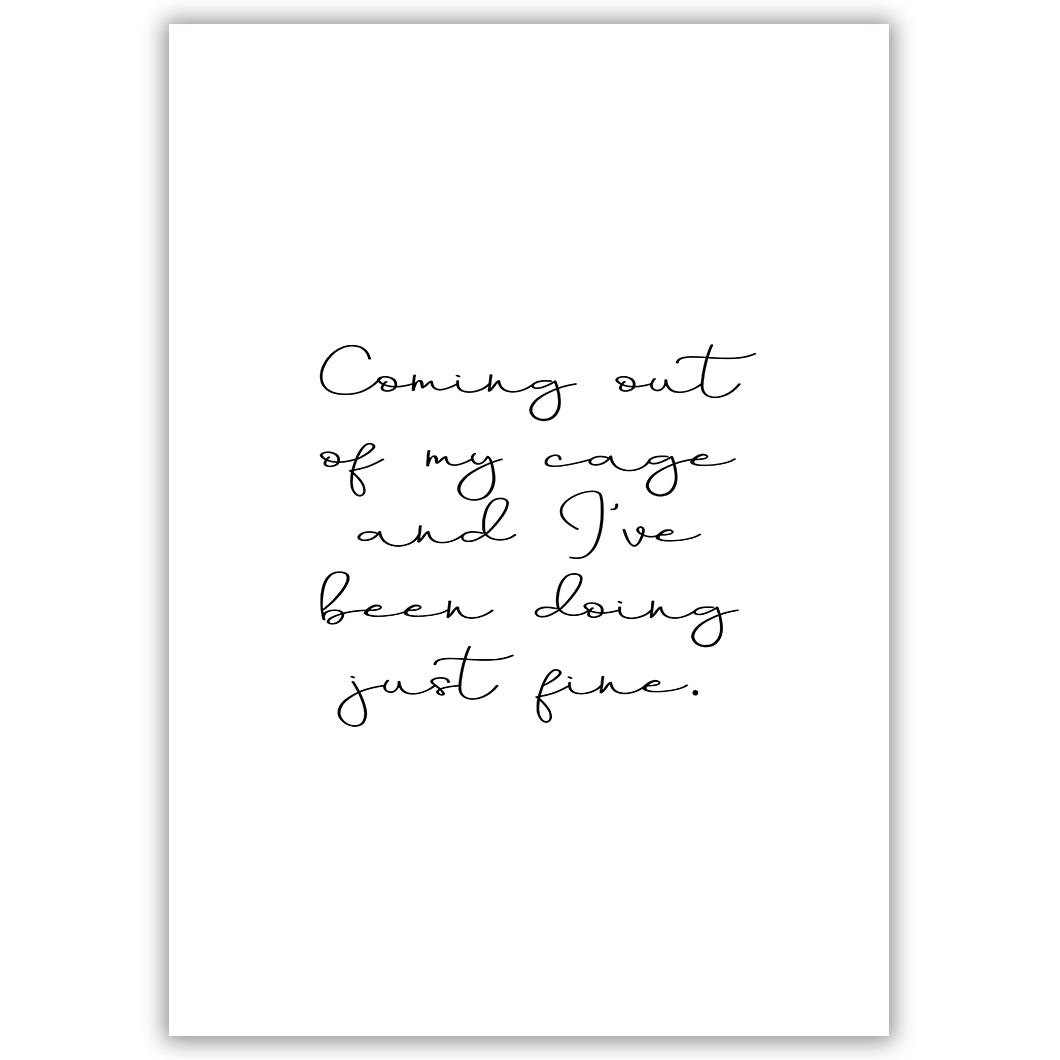 Coming out
of my cage
and I've
been doing
just fine.